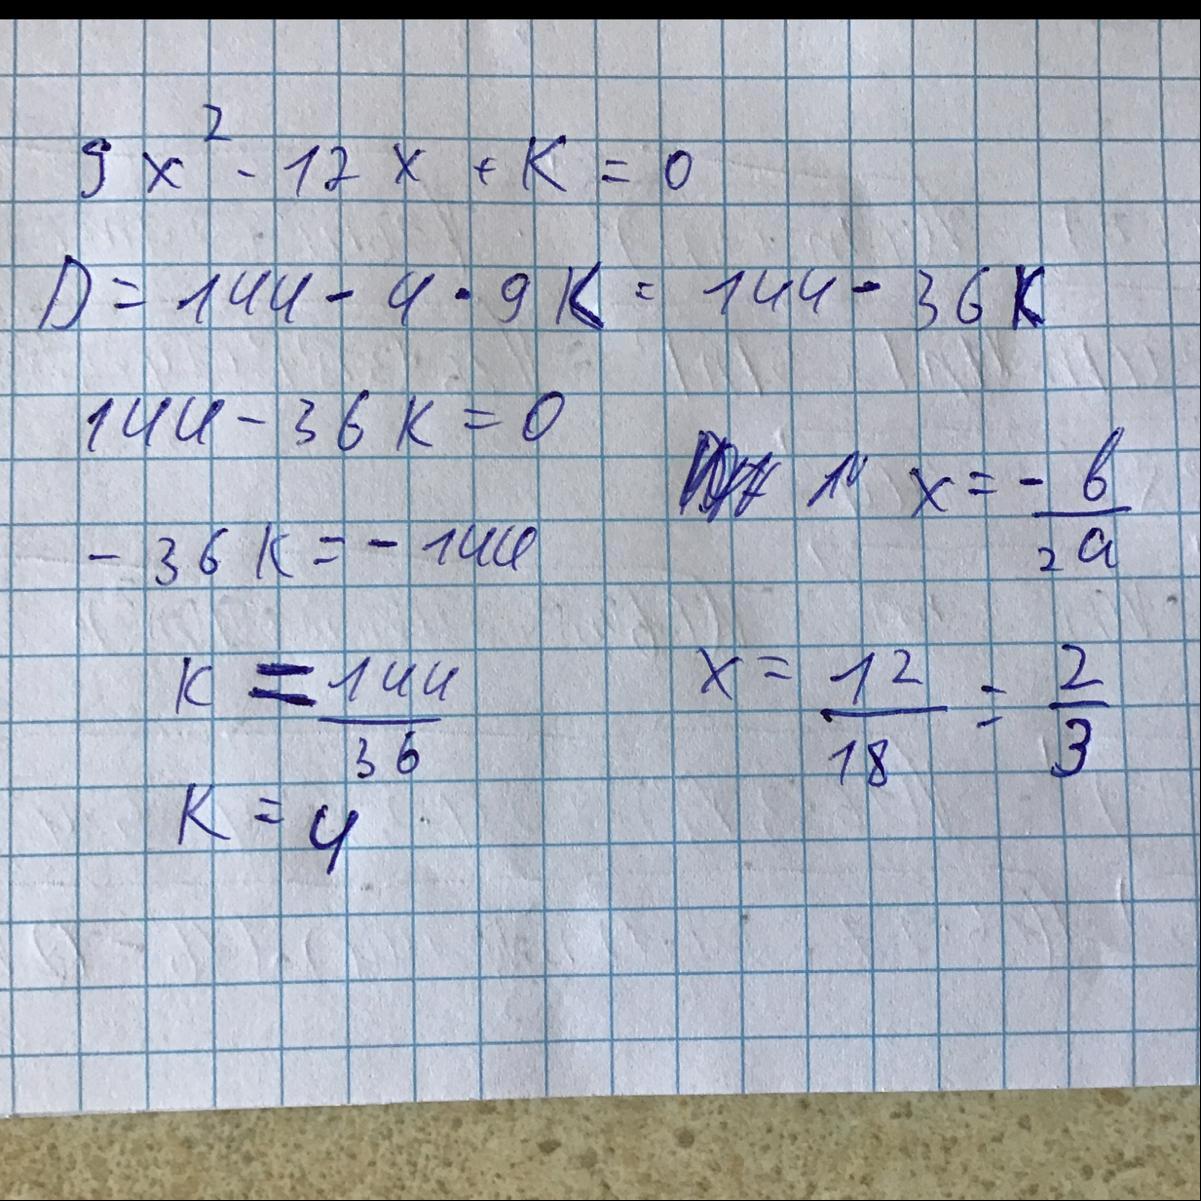 9x² - 12x + K = 0
D = 144 - 4 · 9K = 144 - 36K
144 - 36K = 0
- 36K = - 144
K = 144/36
K = 4
x = - b/2a
x = 12/18 = 2/3